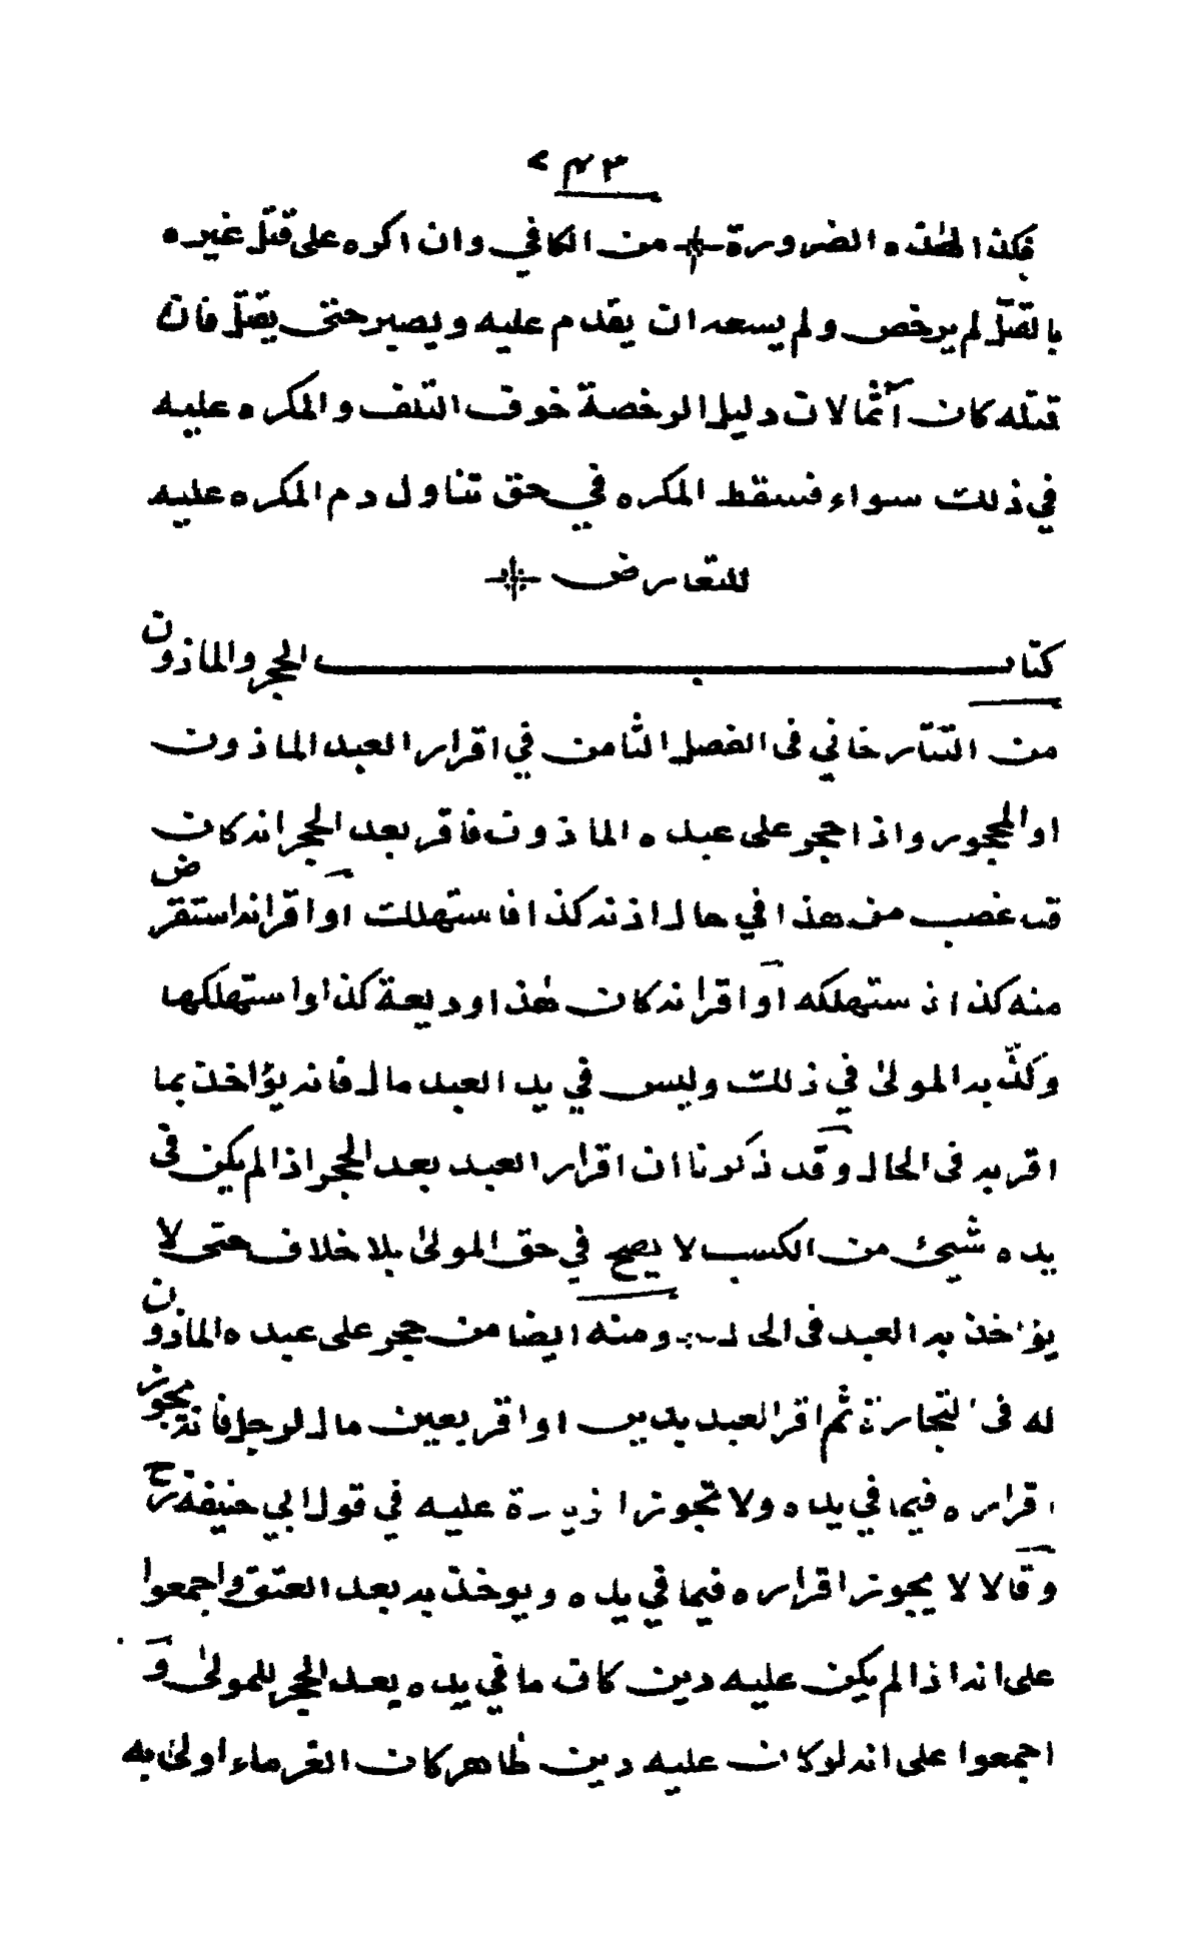 ٧٤٣
فكذا لهذه الضرورة من الكافي وان اكره على قتل غيره
بالقتل لم يرخص ولم يسعه ان يقدم عليه ويصبر حتى يقتل فان
قتله كان آثما لان دليل الرخصة خوف التلف والمكره عليه
في ذلك سواء فسقط المكره في حق تناول دم المكره عليه
للتعارض
كتاب الحجر والماذون
من التتارخاني فى الفصل الثامن في اقرار العبد الماذون
او المحجور واذا حجر على عبده الماذون فاقر بعد الحجر انه كان
قد غصب من هذا في حال اذنه كذا فاستهلك او اقر انه استقرض
منه كذا فاستهلكه او اقر انه كان هذا وديعة كذا واستهلكها
وكذّبه المولىٰ في ذلك وليس في يد العبد مال فانه يؤاخذ بما
اقر به فى الحال وقد ذكرنا ان اقرار العبد بعد الحجر اذا لم يكن فى
يده شيئ من الكسب لا يصح في حق المولىٰ بلا خلاف حتى لا
يؤاخذ به العبد فى الحال ومنه ايضا من حجر على عبده الماذون
له فى التجارة ثم اقر العبد بدين او اقر بعين مال لرجل فانه يجوز
اقراره فيما في يده ولا تجوز الزيادة عليه في قول ابي حنيفة رح
وقالا لا يجوز اقراره فيما في يده ويوخذ به بعد العتق واجمعوا
على انه اذا لم يكن عليه دين كان ما في يده بعد الحجر للمولىٰ و
اجمعوا على انه لو كان عليه دين ظاهر كان الغرماء اولىٰ به